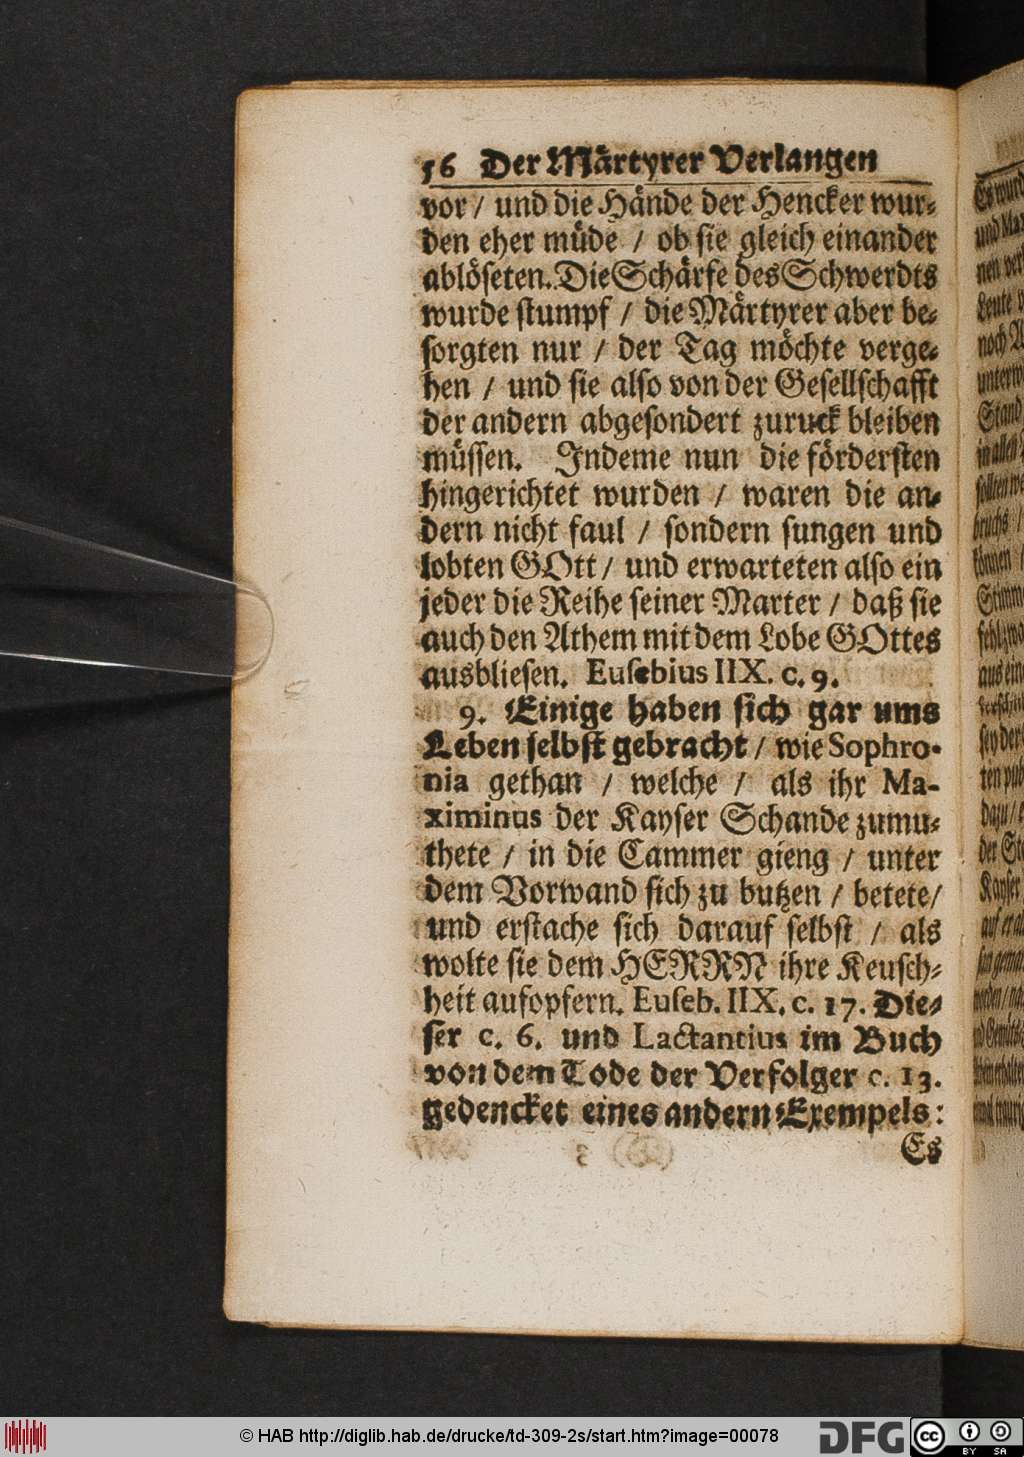 56 Der Märtyrer Verlangen
vor / und die Hände der Hencker wur-
den eher müde / ob sie gleich einander
ablöseten. Die Schärfe des Schwerdts
wurde stumpf / die Märtyrer aber be-
sorgten nur / der Tag möchte verge-
hen / und sie also von der Gesellschafft
der andern abgesondert zuruck bleiben
müssen. Indeme nun die fördersten
hingerichtet wurden / waren die an-
dern nicht faul / sondern sungen und
lobten GOtt / und erwarteten also ein
jeder die Reihe seiner Marter / daß sie
auch den Athem mit dem Lobe GOttes
ausbliesen. Eusebius IIX. c. 9.
9. Einige haben sich gar ums
Leben selbst gebracht / wie Sophro-
nia gethan / welche / als ihr Ma-
ximinus der Kayser Schande zumu-
thete / in die Cammer gieng / unter
dem Vorwand sich zu butzen / betete /
und erstache sich darauf selbst / als
wolte sie dem HERRN ihre Keusch-
heit aufopfern. Euseb. IIX. c. 17. Die-
ser c. 6. und Lactantius im Buch
von dem Tode der Verfolger c. 13.
gedencket eines andern Exempels:
Es
© HAB http://diglib.hab.de/drucke/td-309-2s/start.htm?image=00078
DFG
cc
BY SA